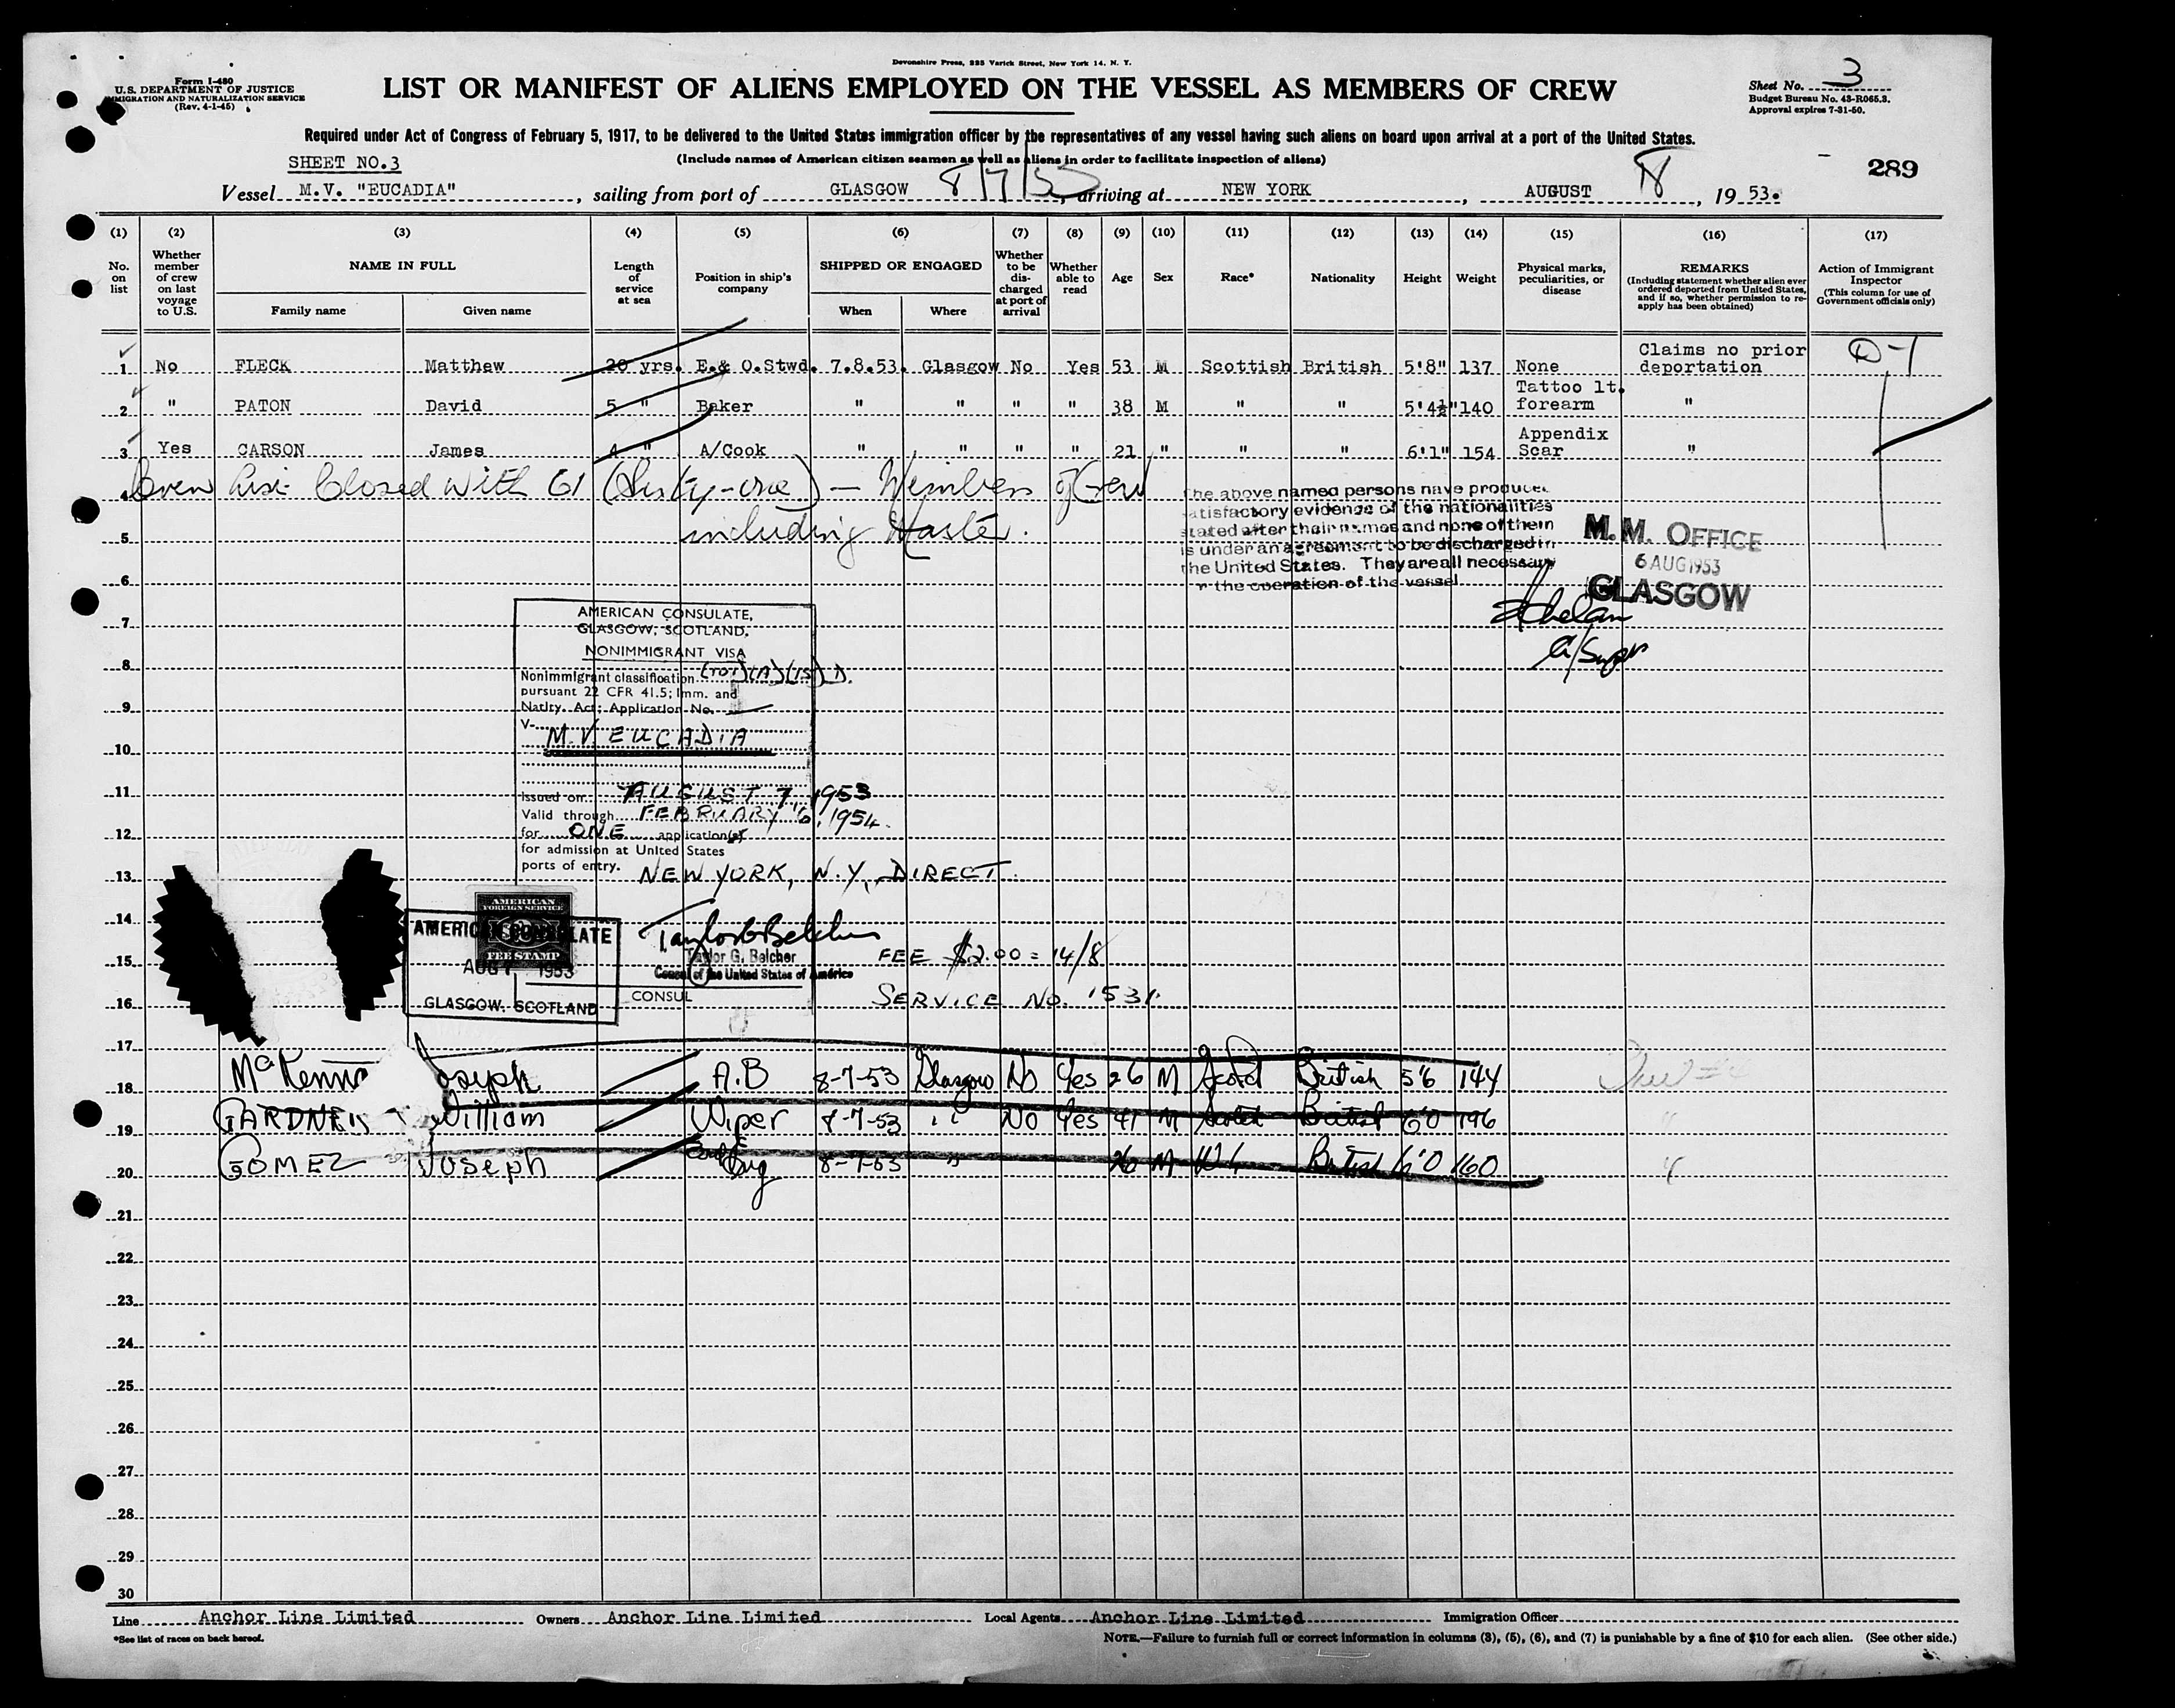 Devonshire Press, 225 Varick Street, New York 14, N. Y.
Form I-480
U.S. DEPARTMENT OF JUSTICE
IMMIGRATION AND NATURALIZATION SERVICE
(Rev. 4-1-45)
LIST OR MANIFEST OF ALIENS EMPLOYED ON THE VESSEL AS MEMBERS OF CREW
Sheet No. 3
Budget Bureau No. 43-R065.3.
Approval expires 7-31-50.
Required under Act of Congress of February 5, 1917, to be delivered to the United States immigration officer by the representatives of any vessel having such aliens on board upon arrival at a port of the United States.
SHEET NO.3
(Include names of American citizen seamen as well as aliens in order to facilitate inspection of aliens)
289
Vessel M.V. "EUCADIA", sailing from port of GLASGOW 8/7/53, arriving at NEW YORK, AUGUST 18, 1953.
(1) (2) (3) (4) (5) (6) (7) (8) (9) (10) (11) (12) (13) (14) (15) (16) (17)
No. on list
Whether member of crew on last voyage to U.S.
NAME IN FULL
Family name Given name
Length of service at sea
Position in ship's company
SHIPPED OR ENGAGED
When Where
Whether to be discharged at port of arrival
Whether able to read
Age
Sex
Race*
Nationality
Height
Weight
Physical marks, peculiarities, or disease
REMARKS
(Including statement whether alien ever ordered deported from United States, and if so, whether permission to re-apply has been obtained)
Action of Immigrant Inspector
(This column for use of Government officials only)
1 No FLECK Matthew 20 yrs. E.& O.Stwd. 7.8.53. Glasgow No Yes 53 M Scottish British 5'8" 137 None Claims no prior deportation D-1
2 " PATON David 5 " Baker " " " " 38 M " " 5'4½" 140 Tattoo lt. forearm "
3 Yes CARSON James 4 " A/Cook " " " " 21 " " " 6'1" 154 Appendix Scar "
4 Crew List Closed with 61 (Sixty-one) — Members of Crew
5 including Master.
The above named persons have produced
satisfactory evidence of the nationalities
stated after their names and none of them
is under an agreement to be discharged in
the United States. They are all necessary
for the operation of the vessel
M.M. OFFICE
6 AUG 1953
GLASGOW
A/Supr
6
7
8
9
10
11
12
13
14
15
16
17
AMERICAN CONSULATE,
GLASGOW, SCOTLAND.
NONIMMIGRANT VISA
Nonimmigrant classification (101)(A)(15) D.
pursuant 22 CFR 41.5; Imm. and
Natlty. Act; Application No.
V-
M.V. EUCADIA
Issued on AUGUST 7, 1953
Valid through FEBRUARY 6, 1954.
for ONE application(s)
for admission at United States
ports of entry. NEW YORK, N.Y, DIRECT.
AMERICAN
FOREIGN SERVICE
FEE STAMP
AMERICAN CONSULATE
AUG 7, 1953
GLASGOW, SCOTLAND
Taylor G. Belcher
Taylor G. Belcher
Consul of the United States of America
CONSUL
FEE $2.00 = 14/8
SERVICE NO. 1531.
18 McKenna Joseph A.B 8-7-53 Glasgow No Yes 26 M Scotch British 5'6 144
19 GARDNER William Wiper 8-7-53 " No Yes 41 M Scotch British 6'0 196 "
20 GOMEZ Joseph Eng 8-7-53 " 26 M British 6'0 160 "
21
22
23
24
25
26
27
28
29
30
Line Anchor Line Limited Owners Anchor Line Limited Local Agents Anchor Line Limited Immigration Officer
*See list of races on back hereof.
NOTE.—Failure to furnish full or correct information in columns (3), (5), (6), and (7) is punishable by a fine of $10 for each alien. (See other side.)